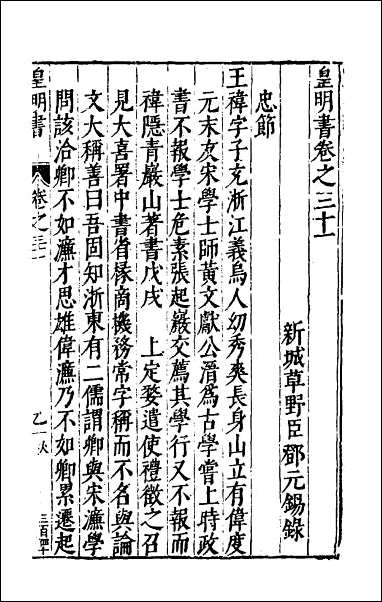 皇明書卷之三十一
新城草野臣鄧元錫錄
忠節
王褘字子充浙江義烏人幼秀爽長身山立有偉度
元末友宋學士師黃文獻公溍為古學嘗上時政
書不報學士危素張起巖交薦其學行又不報而
褘隱青巖山著書戊戌　上定婺遣使禮徵之召
見大喜署中書省掾商機務常字稱而不名與論
文大稱善曰吾固知浙東有二儒謂卿與宋濂學
問該洽卿不如濂才思雄偉濂乃不如卿累遷起
皇明書
卷之三十一
三百四十